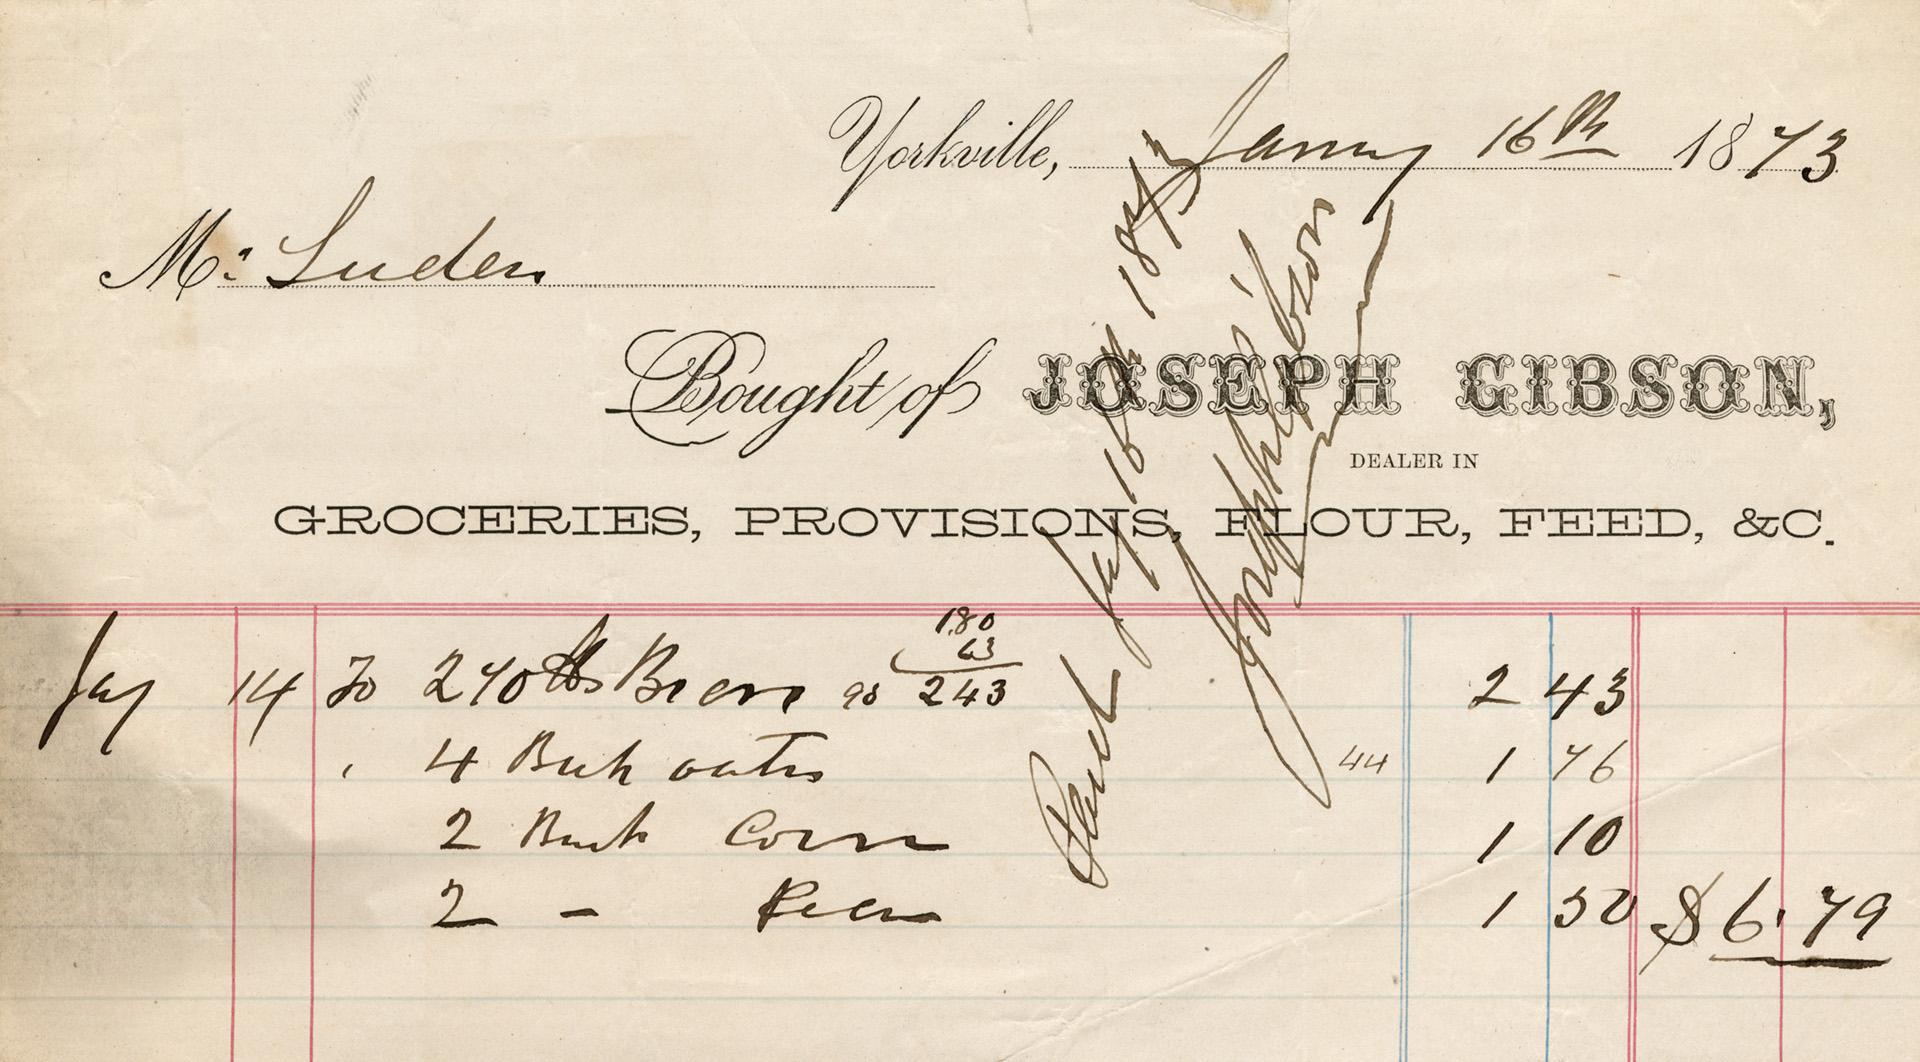 Yorkville, Jany 16th 1873
Mr. Luders
Bought of JOSEPH GIBSON,
DEALER IN
GROCERIES, PROVISIONS, FLOUR, FEED, &C.
180
63
Jay 14 To 270 lbs 90 243 2 43
4 Bush oats 44 1 76
2 Bush Corn 1 10
2 - 1 50 $6.79
Paid Jay 16th 1873
Joseph Gibson